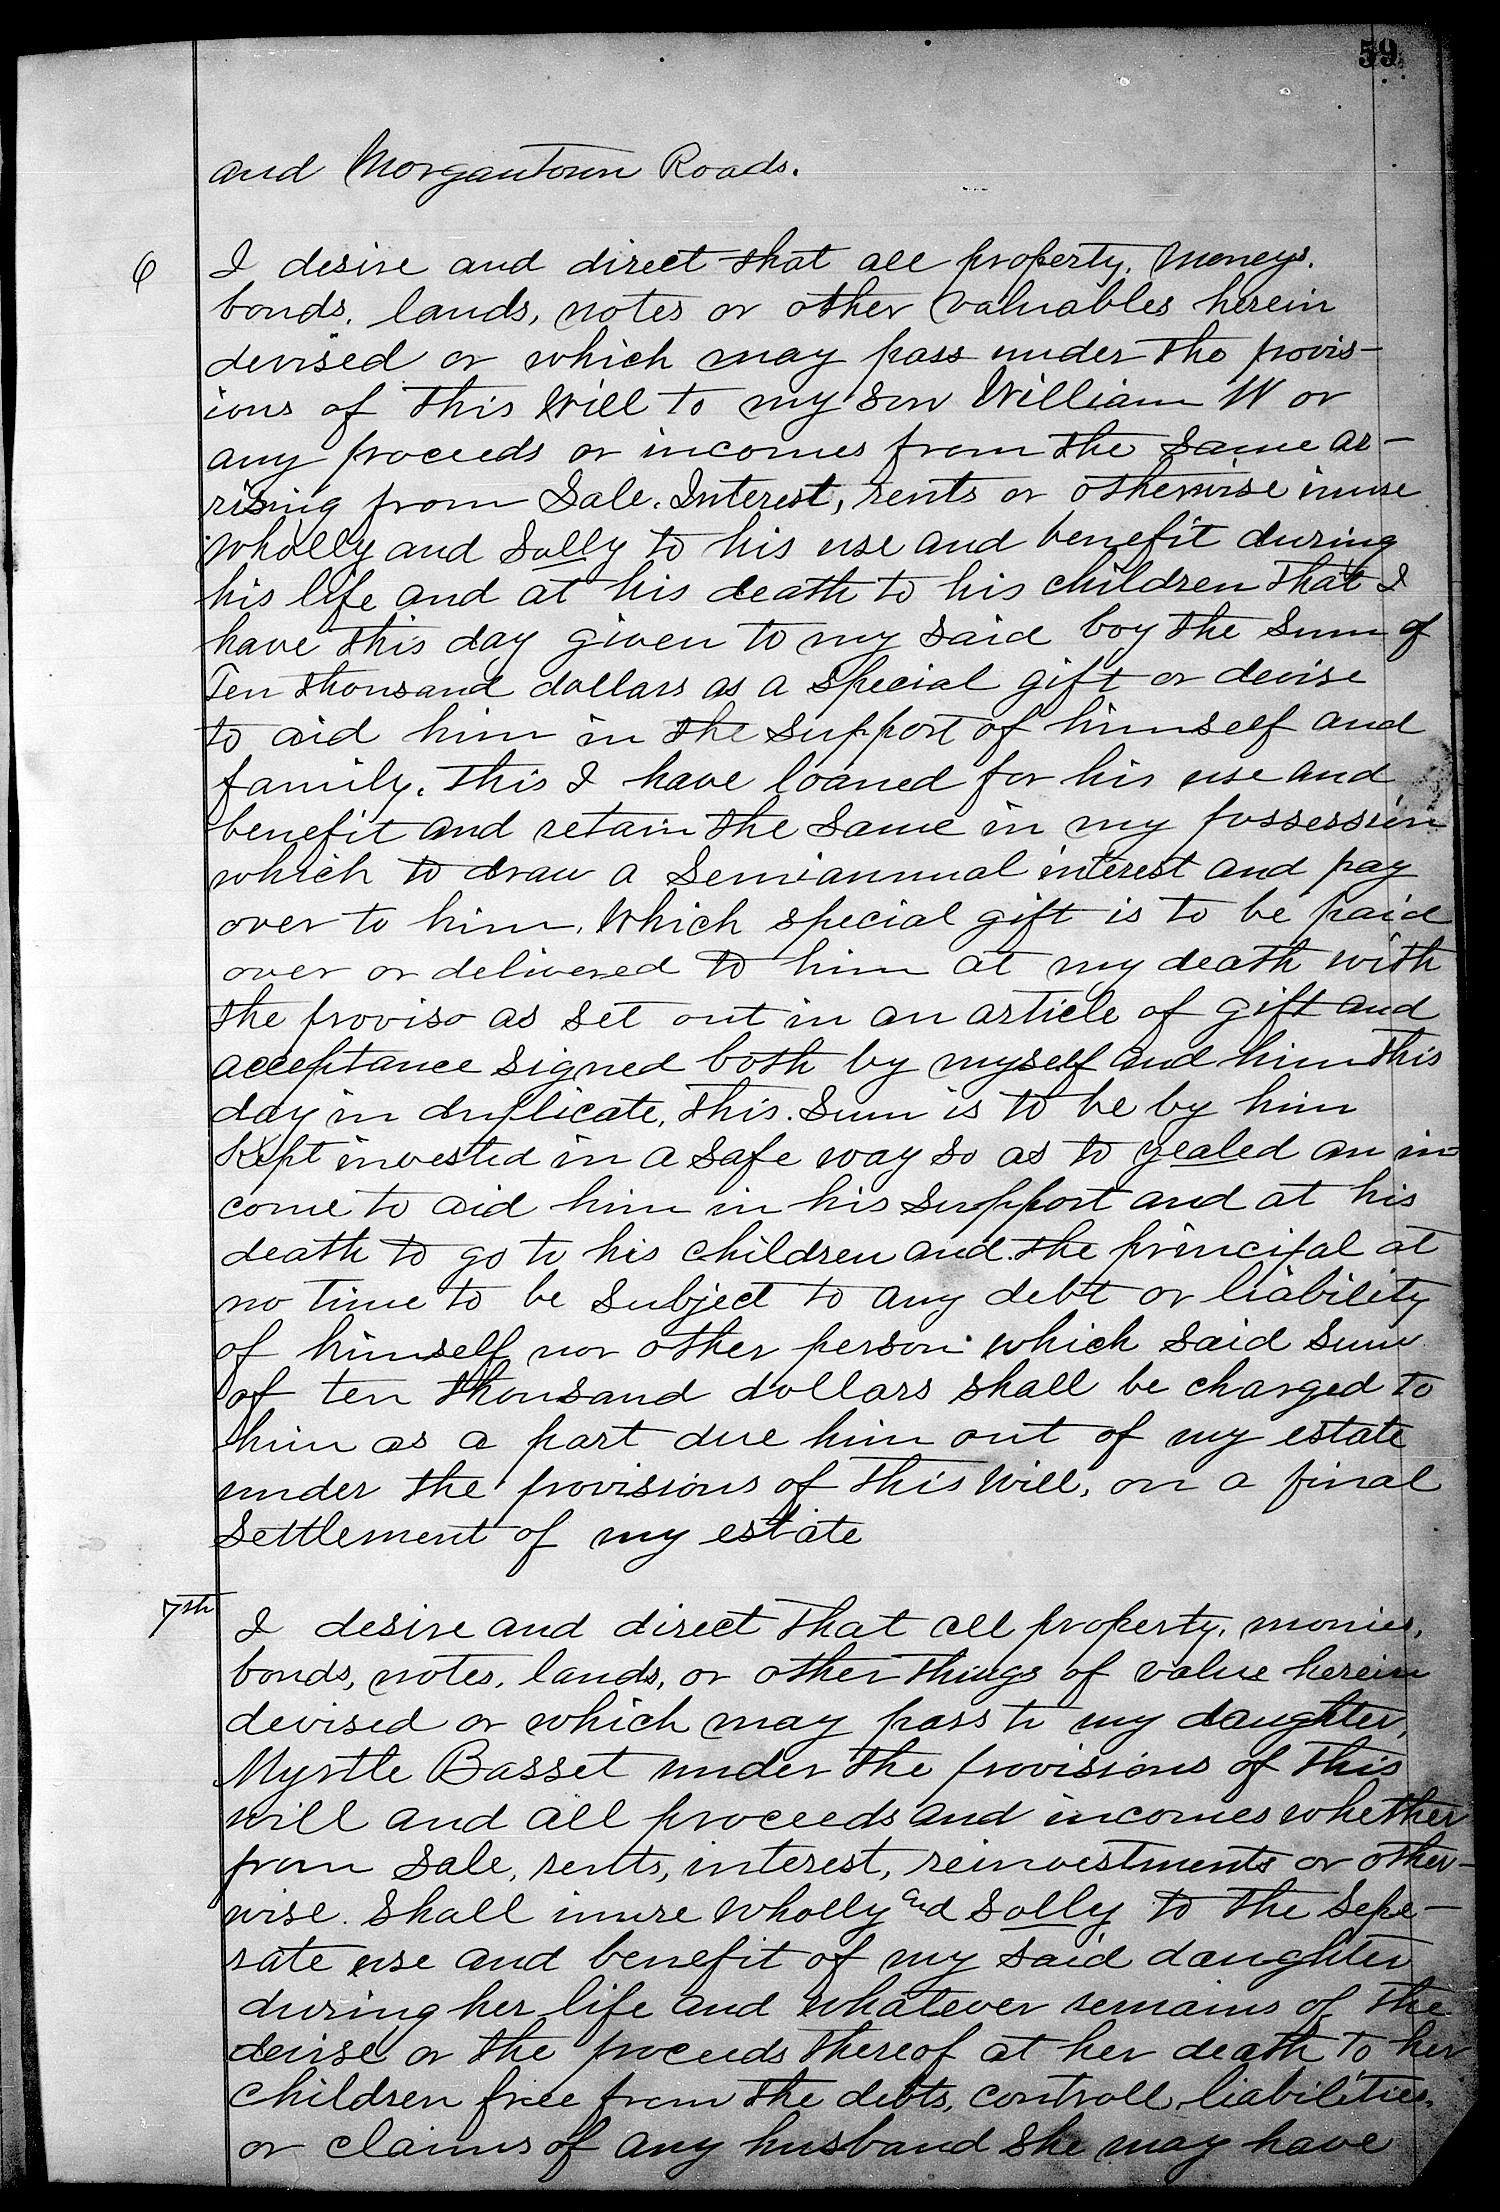 59
and Morgantown Roads.
6 I desire and direct that all property, moneys,
bonds, lands, notes or other valuables herein
devised or which may pass under the provis-
ions of this Will to my son William W or
any proceeds or incomes from the same ar-
rising from Sale, Interest, rents or otherwise inure
wholly and Solly to his use and benefit during
his life and at his death to his children that I
have this day given to my said boy the Sum of
Ten thousand dollars as a special gift or devise
to aid him in the support of himself and
family. This I have loaned for his use and
benefit and retain the same in my possession
which to draw a Semiannual interest and pay
over to him. Which special gift is to be paid
over or delivered to him at my death with
the proviso as set out in an article of gift and
acceptance signed both by myself and him this
day in duplicate, this Sum is to be by him
Kept invested in a safe way so as to yealed an in-
come to aid him in his support and at his
death to go to his children and the principal at
no time to be subject to any debt or liability
of himself nor other person which said sum
of ten thousand dollars shall be charged to
him as a part due him out of my estate
under the provisions of this Will, on a final
Settlement of my estate
7th I desire and direct that all property, monies,
bonds, notes, lands, or other things of value herein
devised or which may pass to my daughter,
Myrtle Basset under the provisions of this
will and all proceeds and incomes whether
from sale, rents, interest, reinvestments or other-
wise. Shall inure wholly and Solly to the Sepe-
rate use and benefit of my said daughter
during her life and whatever remains of the
devise or the proceeds thereof at her death to her
children free from the debts, controll, liabilities,
or claims of any husband she may have